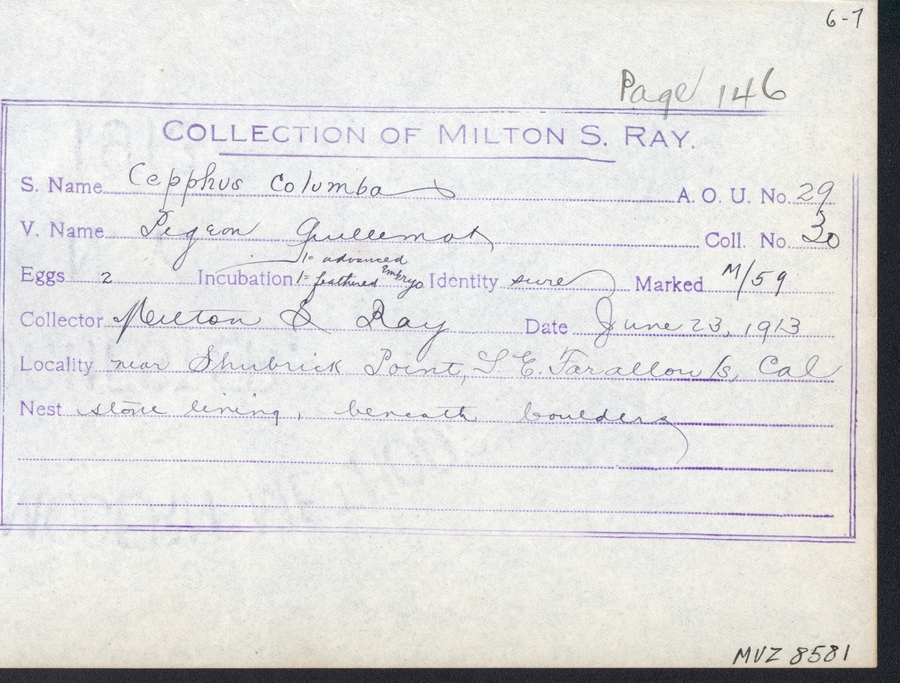 6-7
Page 146
COLLECTION OF MILTON S. RAY.
S. Name Cepphus columba A. O. U. No. 29
V. Name Pigeon Guillemot Coll. No. 30
1= advanced
Eggs 2 Incubation 1= feathered Embryo Identity sure Marked M/59
Collector Milton S Ray Date June 23, 1913
Locality near Shubrick Point, S. E. Farallon Is, Cal
Nest stone lining, beneath boulders
MVZ 8581